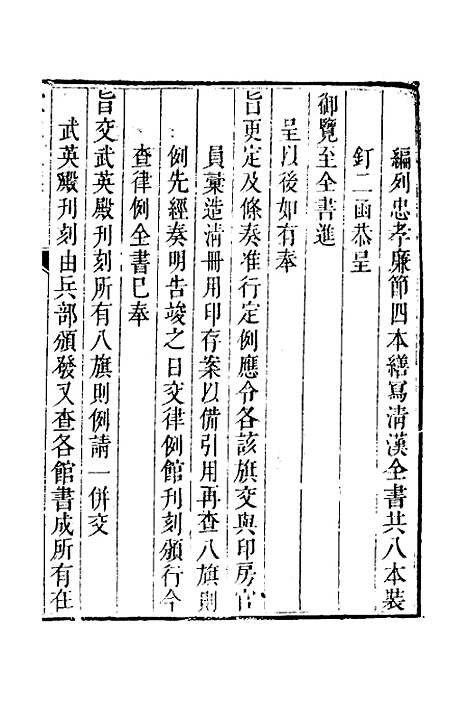 編列忠孝廉節四本繕寫淸漢全書共八本裝
釘二函恭呈
御覽至全書進
呈以後如有奉
旨更定及條奏准行定例應令各該旗交與印房官
員彙造淸冊用印存案以備引用再查八旗則
例先經奏明告竣之日交律例館刊刻頒行今
查律例全書已奉
旨交武英殿刊刻所有八旗則例請一併交
武英殿刊刻由兵部頒發又查各館書成所有在